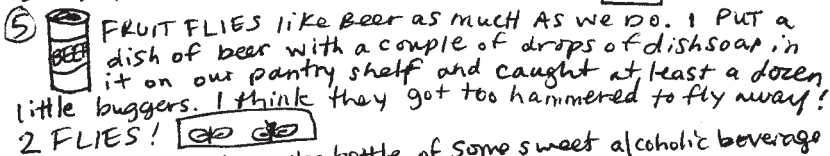 5 FRUIT FLIES like Beer as much As we Do. I PUT a
BEER dish of beer with a couple of drops of dishsoap in
it on our pantry shelf and caught at least a dozen
little buggers. I think they got too hammered to fly away!
2 FLIES!
bottle of some sweet alcoholic beverage